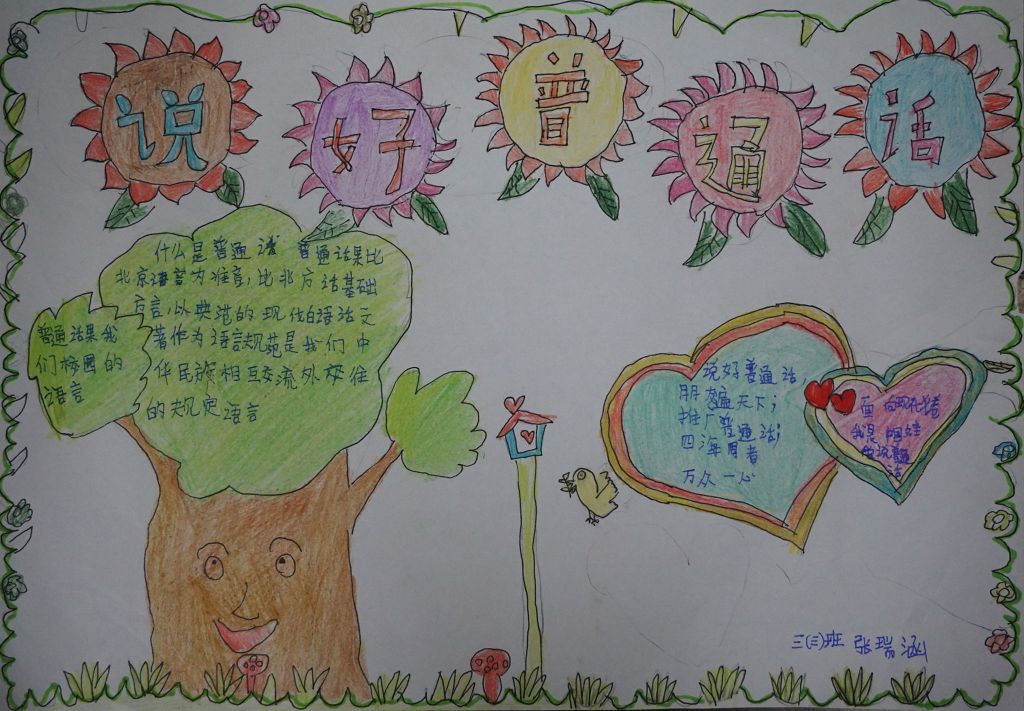 说好普通话
什么是普通话 普通话果比
北京语言为准音，比北方话基础
方言，以典范的现代白语法文
著作为语言规范是我们中
华民族相互交流外校往
的规定语言
普通话果我
们校园的
语言
说好普通话
朋友遍天下；
推广普通话；
四海同者
万众一心
面向现代
我是
三(三)班 张瑞涵